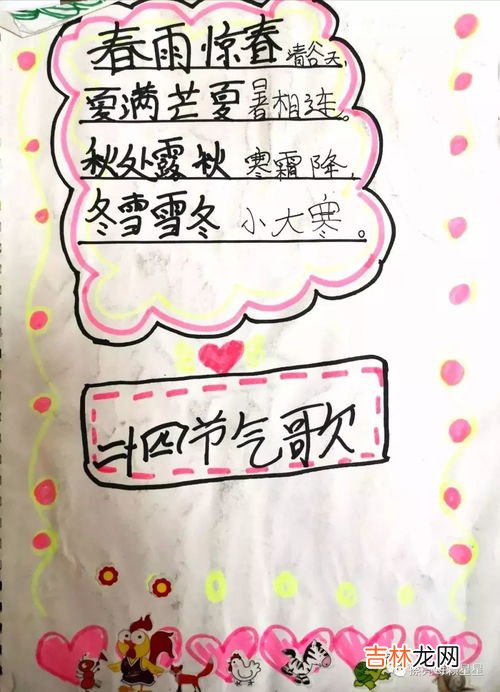 春雨惊春清谷天,
夏满芒夏暑相连。
秋处露秋寒霜降,
冬雪雪冬小大寒。
二十四节气歌
吉林龙网
www.jllw.cn